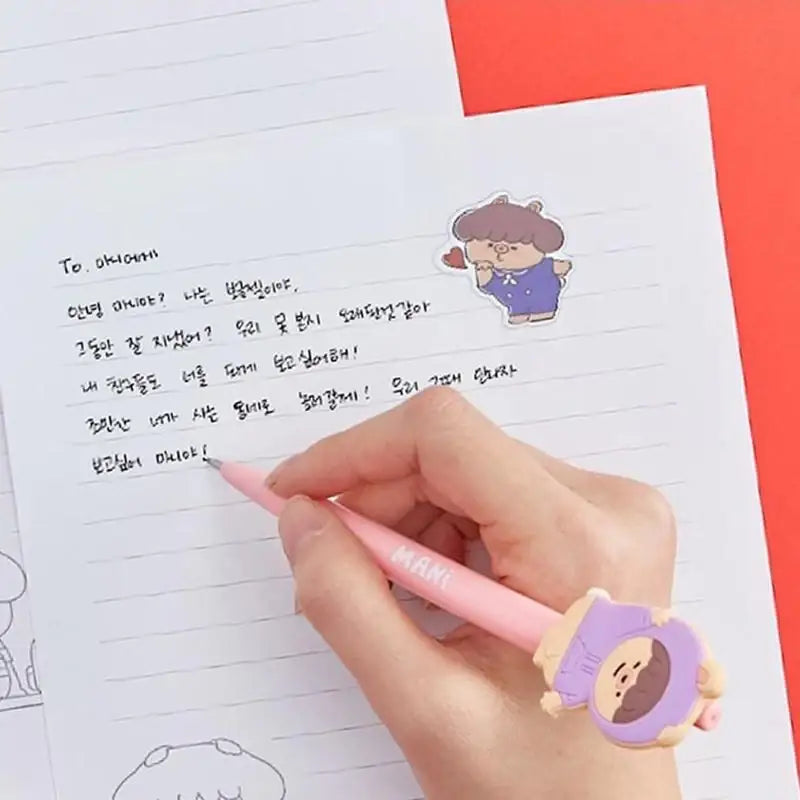 To. 마니에게
안녕 마니야? 나는 보물젤이야.
그동안 잘 지냈어? 우리 못 본지 오래된것같아
내 친구들도 너를 되게 보고싶어해!
조만간 너가 사는 동네로 놀러갈께! 우리 그때 만나자
보고싶어 마니야!
MANi